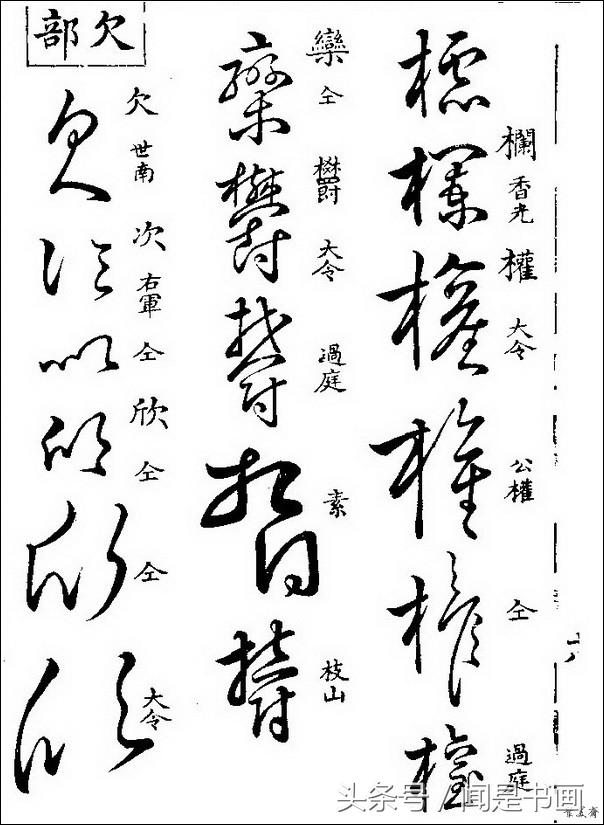 欄 香光
權 大令
公權
仝
過庭
欒 仝
欝 大令
過庭
素
枝山
欠部
欠 世南
次 右軍
仝
欣 仝
仝
大令
头条号 / 闻是书画